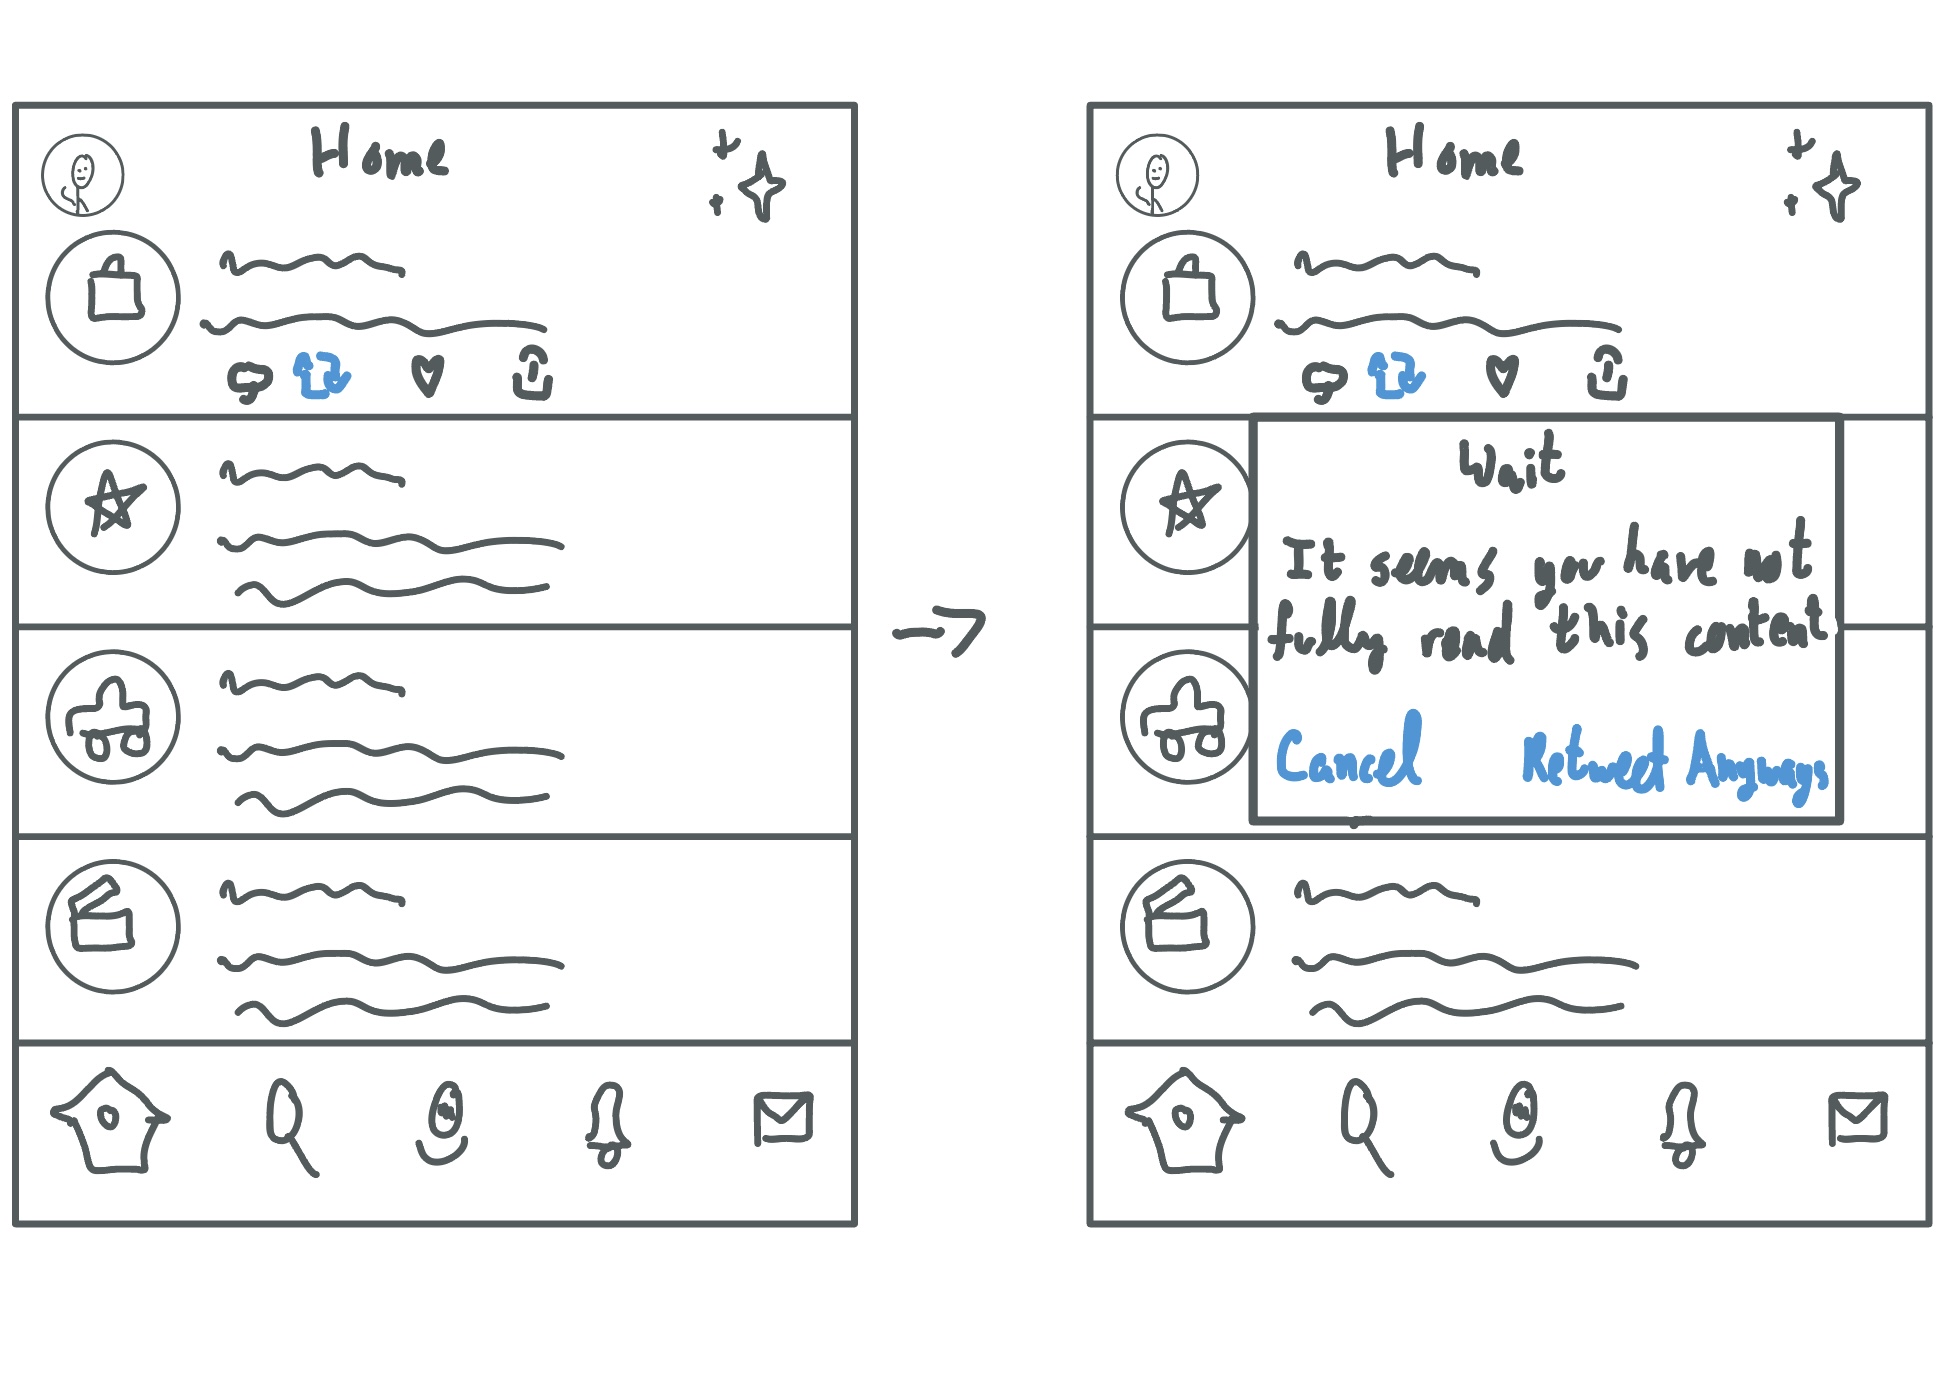 Home
Home
Wait
It seems you have not
fully read this content
Cancel Retweet Anyways